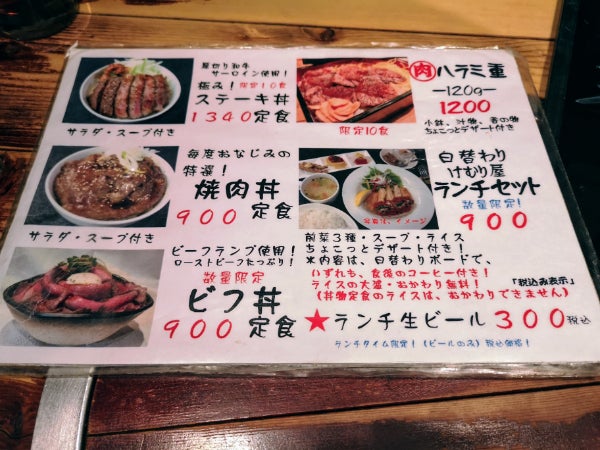 厚切り和牛
サーロイン使用!
極み!限定10食
ステーキ丼
1340定食
サラダ・スープ付き
毎度おなじみの
特選!
焼肉丼
900定食
サラダ・スープ付き
ビーフランプ使用!
ローストビーフたっぷり!
数量限定
ビフ丼
900定食
限定10食
肉ハラミ重
—120g—
1200
小鉢、汁物、香の物
ちょこっとデザート付き
日替わり
けむり屋
ランチセット
数量限定!
900
写真は、イメージ
前菜3種・スープ・ライス
ちょこっとデザート付き!
※内容は、日替わりボードで、
いずれも、食後のコーヒー付き!
ライスの大盛・おかわり無料!
「税込み表示」
(丼物定食のライスは、おかわりできません)
★ランチ生ビール 300税込
ランチタイム限定!(ビールのみ)税込価格!